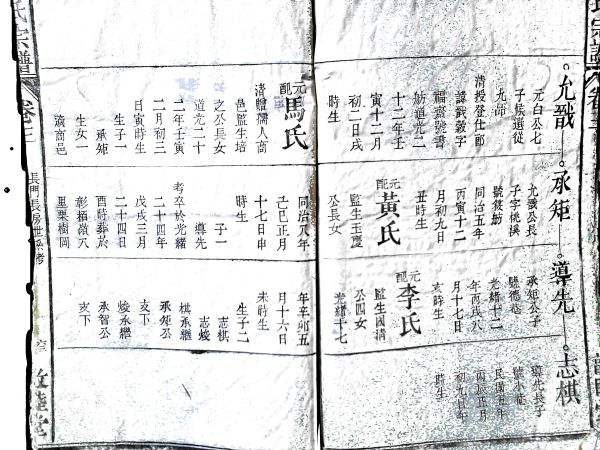 允戩
元白公七
子候選從
九品
清授登仕郎
諱戩穀字
福齋號書
舫道光二
十二年壬
寅十二月
初二日戌
時生
元配
馬氏
清贈孺人商
邑監生培
之公長女
道光二十
二年壬寅
二月初三
日寅時生
生子一
承矩
生女一
適商邑
承矩
允戩公長
子字桃溪
號筱舫
同治五年
丙寅十一
月初九日
丑時生
元配
黃氏
監生玉慶
公長女
同治八年
己巳正月
十七日申
時生
子一
導先
考卒於光緒
二十四年
戊戌三月
二十四日
酉時葬於
彰福嶺八
里栗樹岡
導先
承矩公子
光緒十二
年丙戌八
月十七日
亥時生
元配
李氏
監生國清
公四女
光緒十七
年辛卯五
月十六日
未時生
生子二
志棋
志煥
棋承繼
承矩公
支下
煥承繼
承智公
支下
志棋
導先長子
民國五年
丙辰五月
初九日午
時生
氏宗譜
長門長房世系考
敦睦堂